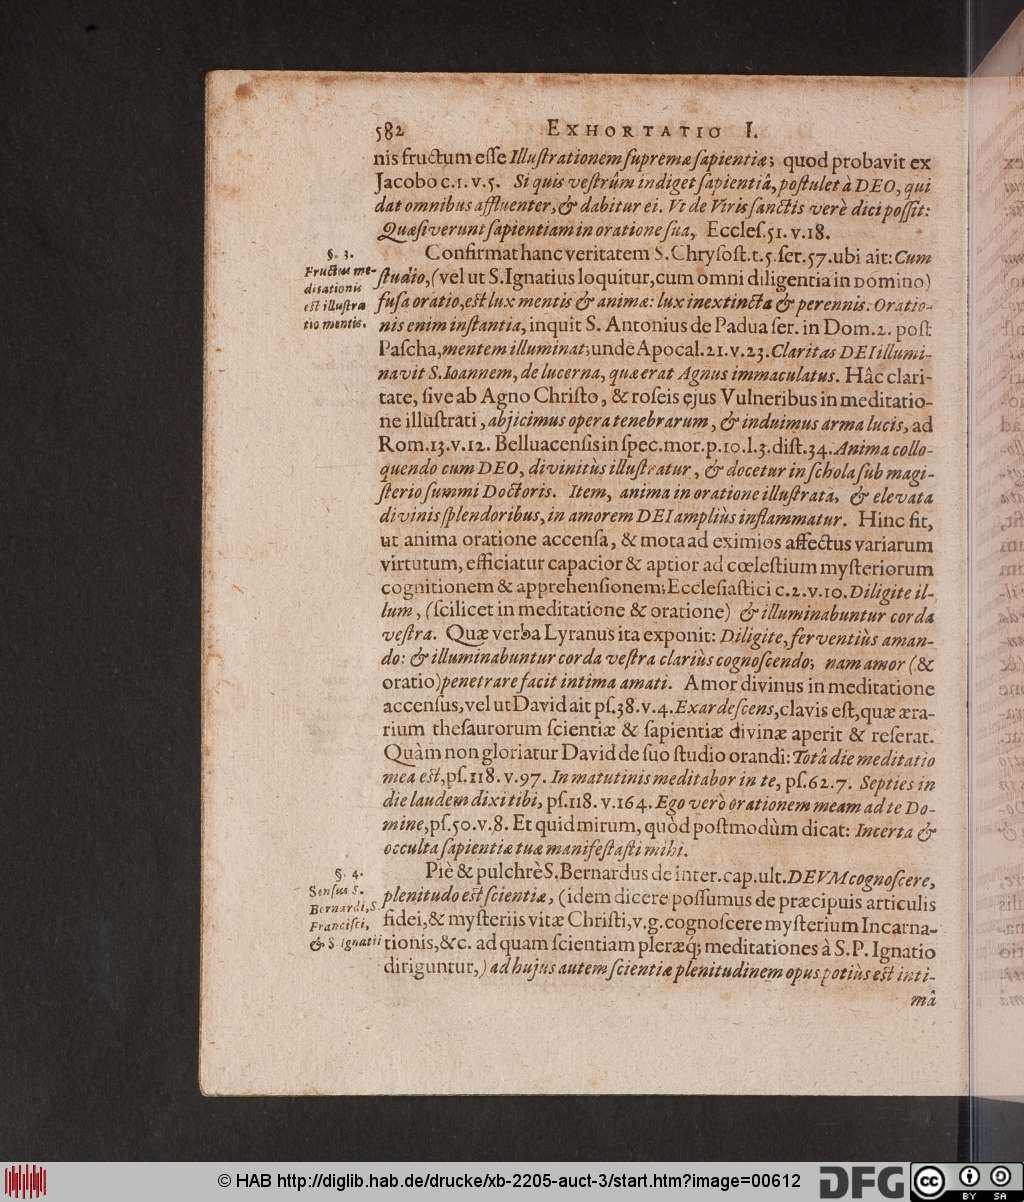 582 EXHORTATIO I.
nis fructum esse Illustrationem supremæ sapientiæ; quod probavit ex
Jacobo c.1. v.5. Si quis vestrûm indiget sapientiâ, postulet à DEO, qui
dat omnibus affluenter, & dabitur ei. Vt de Viris sanctis verè dici possit:
Quæsiverunt sapientiam in oratione sua, Eccles. 51. v.18.
§. 3.
Fructus me-
ditationis
est illustra
tio mentis.
Confirmat hanc veritatem S. Chrysost. t.5. ser. 57. ubi ait: Cum
studio, (vel ut S. Ignatius loquitur, cum omni diligentia in DOMINO)
fusa oratio, est lux mentis & animæ: lux inextincta & perennis: Oratio-
nis enim instantia, inquit S. Antonius de Padua ser. in Dom. 2. post
Pascha, mentem illuminat; unde Apocal. 21. v.23. Claritas DEI illumi-
navit S. Ioannem, de lucerna, quæ erat Agnus immaculatus. Hâc clari-
tate, sive ab Agno Christo, & roseis ejus Vulneribus in meditatio-
ne illustrati, abjicimus opera tenebrarum, & induimus arma lucis, ad
Rom. 13. v.12. Belluacensis in spec. mor. p. 10. l. 3. dist. 34. Anima collo-
quendo cum DEO, divinitùs illustratur, & docetur in schola sub magi-
sterio summi Doctoris. Item, anima in oratione illustrata, & elevata
divinis splendoribus, in amorem DEI ampliùs inflammatur. Hinc fit,
ut anima oratione accensa, & mota ad eximios affectus variarum
virtutum, efficiatur capacior & aptior ad cœlestium mysteriorum
cognitionem & apprehensionem; Ecclesiastici c.2. v.10. Diligite il-
lum, (scilicet in meditatione & oratione) & illuminabuntur corda
vestra. Quæ verba Lyranus ita exponit: Diligite, ferventiùs aman-
do: & illuminabuntur corda vestra clariùs cognoscendo; nam amor (&
oratio) penetrare facit intima amati. Amor divinus in meditatione
accensus, vel ut David ait ps. 38. v.4. Exardescens, clavis est, quæ æra-
rium thesaurorum scientiæ & sapientiæ divinæ aperit & reserat.
Quàm non gloriatur David de suo studio orandi: Totâ die meditatio
mea est, ps. 118. v.97. In matutinis meditabor in te, ps. 62. 7. Septies in
die laudem dixi tibi, ps. 118. v.164. Ego verò orationem meam ad te Do-
mine, ps. 50. v.8. Et quid mirum, quòd postmodùm dicat: Incerta &
occulta sapientiæ tuæ manifestasti mihi.
§. 4.
Sensus S.
Bernardi, S.
Francisci,
& S Ignatii
Piè & pulchrè S. Bernardus de inter. cap. ult. DEVM cognoscere,
plenitudo est scientiæ, (idem dicere possumus de præcipuis articulis
fidei, & mysteriis vitæ Christi, v.g. cognoscere mysterium Incarna-
tionis, &c. ad quam scientiam pleræq; meditationes à S. P. Ignatio
diriguntur,) ad hujus autem scientiæ plenitudinem opus potiùs est inti-
mâ
© HAB http://diglib.hab.de/drucke/xb-2205-auct-3/start.htm?image=00612
DFG
cc BY SA